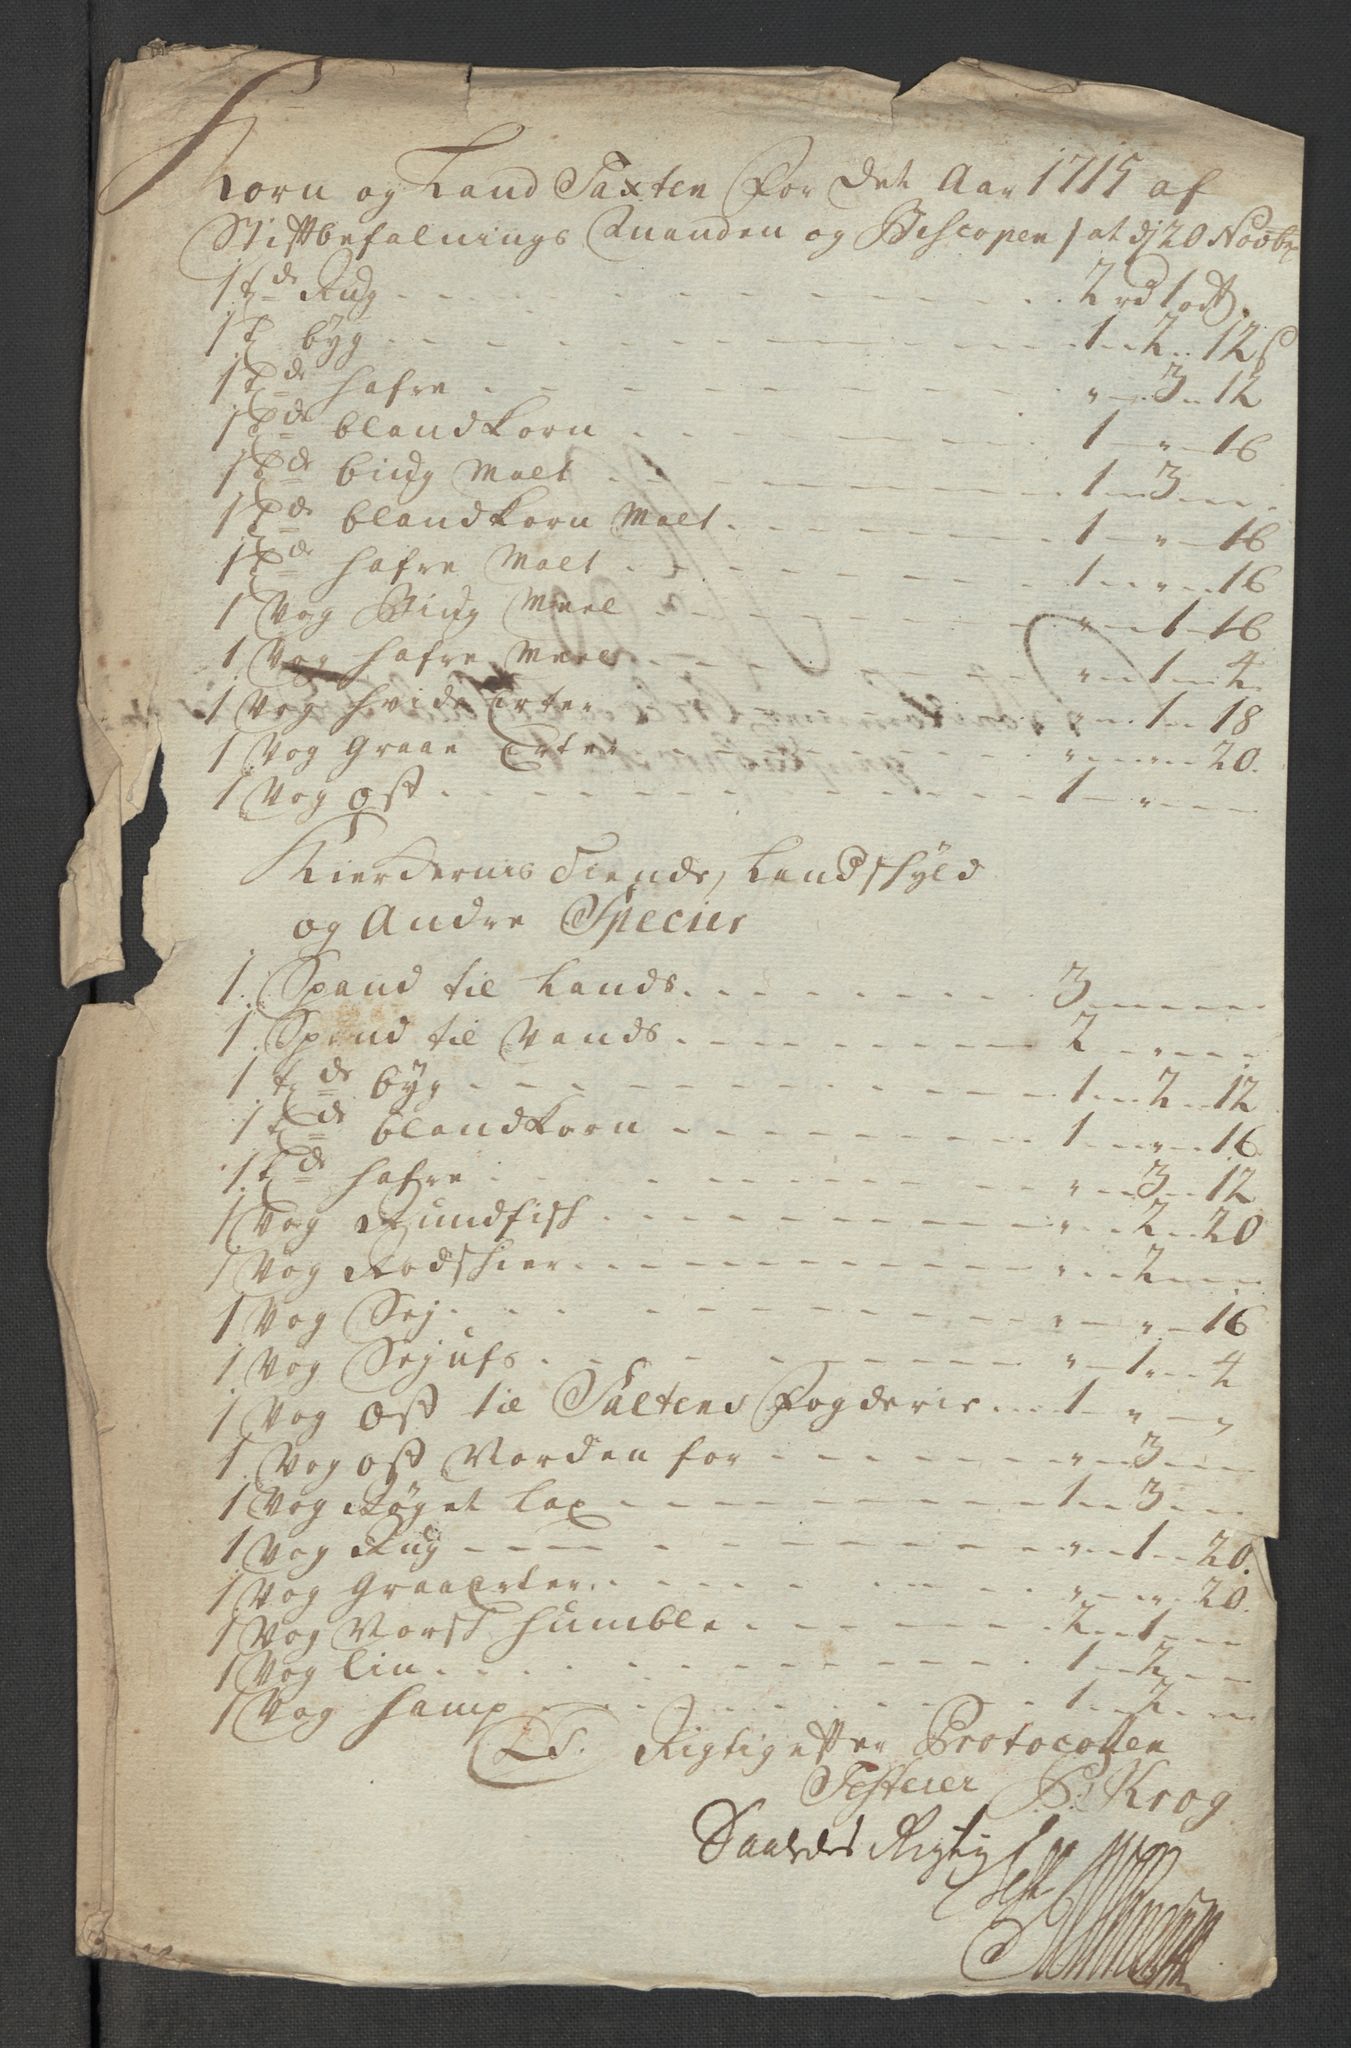 Korn og Land Taxten For Det Aar 1715 af
Stiftbefalnings Manden og Biscopen sat d. 20 Novbr
1 tde Rug - - - 2 rd 1 ort
1 t byg - - - 1 - 2 - 12 s
1 tde hafre - - - " - 3 - 12
1 tde blandkorn - - - 1 - " - 16
1 tde biug Malt - - - 1 - 3 - -
1 tde blandkorn Malt - - - 1 - " - 16
1 tde hafre Malt - - - 1 - " - 16
1 Vog Biug Meel - - - " - 1 - 16
1 Vog hafre Meel - - - " - 1 - 4
1 Vog hvide Erter - - - " - 1 - 18
1 Vog Graae Erter - - - " - " - 20.
1 Vog ost - - - 1 - " - -
Kierckernis Tiende, Landskyld
og Andre Species
1. Spand til Lands - - - 3 - - -
1. Spand til Vands - - - 2 - " - -
1 tde byg - - - 1 - 2 - 12
1 tde blandkorn - - - 1 - " - 16
1 tde hafre - - - " - 3 - 12
1 Vog Rundfisk - - - " - 2 - 20
1 Vog Rodskier - - - " - 2 - -
1 Vog Sej - - - " - " - 16
1 Vog Sejufs - - - " - 1 - 4
1 Vog ost til Saltens Fogderie - - - 1 - " - "
1. Vog ost Norden for - - - " - 3 - -
1 Vog Røget lax - - - 1 - 3 - -
1 Vog Rug - - - " - 1 - 20.
1 Vog Graa Erter - - - " - " - 20.
1 Vog Norsk humble - - - 2 - 1 - -
1 Vog lin - - - 1 - 2 - -
1 Vog hamp - - - 1 - 2 - -
LS. Rigtig efter Protocollen
Testerer P: Krog
Saaledes Rigtig
Test